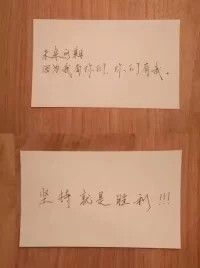 未来可期
因为我有你们,你们有我。
坚持就是胜利!!!